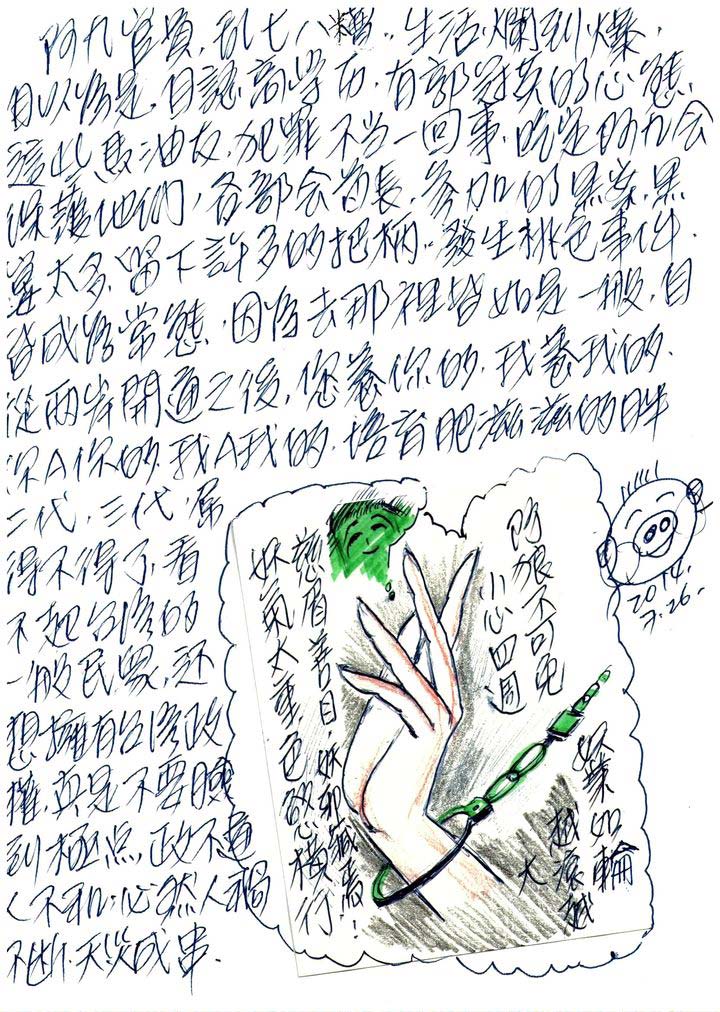 阿九官員,亂七八糟,生活爛到爆,
自以為是,自認高学历,有部冠英的心態,
這些馬油友,犯罪不当一回事,吃定阿九会
保護他們,各部会首長,参加的黑案,黑
選太多,留下許多的把柄,發生桃色事件,
皆成為常態,因為去那裡皆如是一般,自
從兩岸開通之後,您養你的,我養我的,
你A你的,我A我的,培育肥滋滋的胖
二代,三代,屌
得不得了,看
不起台湾的
一般民眾,还
想擁有台湾政
權,真是不要臉
到極点,政不通
人不和,必然人禍
不断,天災成串.
阿狼不可免
小心四週
慈眉善目,妖到
妖氣太重,色慾橫行
妖業如輪
越滾越
大
2014.
7.26.